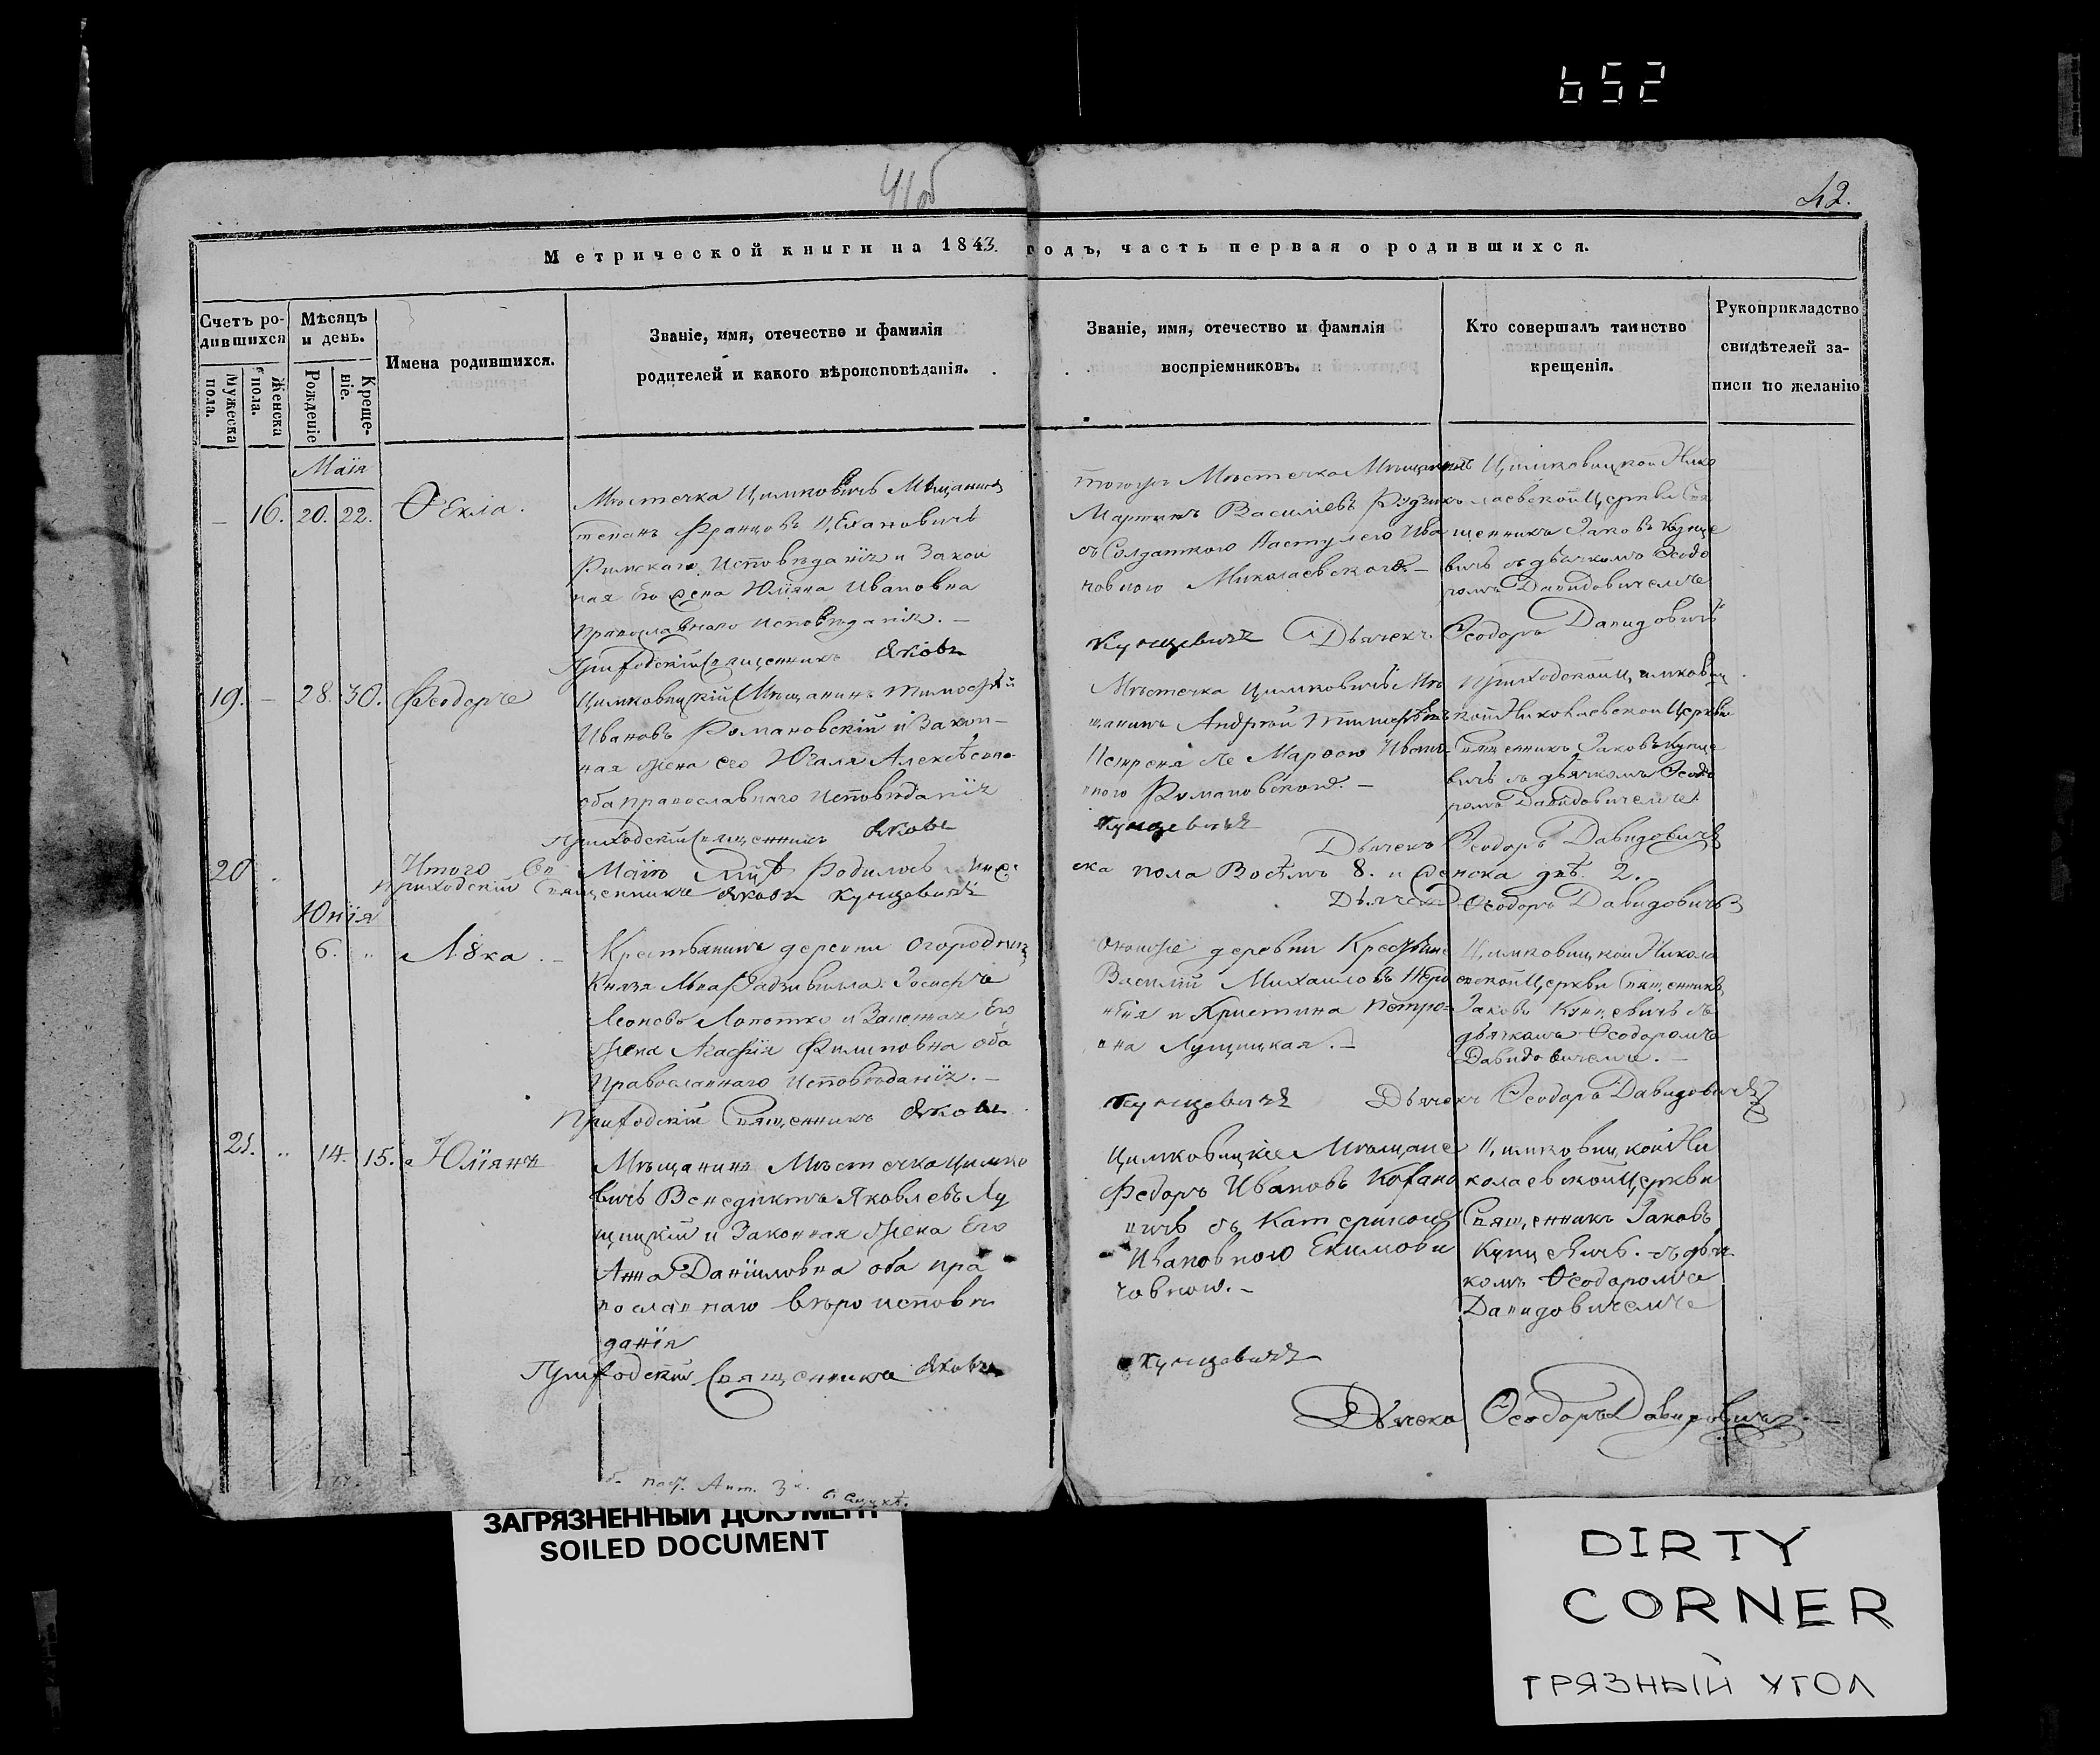 652
41об
42.
Метрической книги на 1843 годъ, часть первая о родившихся.
Счетъ ро-
дившихся
Мѣсяцъ
и день.
Мужеска
пола.
Женска
пола.
Рожденіе
Креще-
ніе.
Имена родившихся.
Званіе, имя, отечество и фамилія
родителей и какого вѣроисповѣданія.
Званіе, имя, отечество и фамилія
воспріемниковъ.
Кто совершалъ таинство
крещенія.
Рукоприкладство
свидѣтелей за-
писи по желанію
Маія
— 16. 20. 22. Ѳекла.
Мѣстечка Цимковичъ Мѣщанинъ
Францовъ
Римскаго Исповѣданія и Закон
ная его жена Юліяна Ивановна
Православнаго исповѣданія. —
Приходскій Священникъ Яковъ
Мѣстечка Мѣщанинъ
Мартинъ Василіевъ
новною Миколаевскою. —
Кунцевичъ Дьячекъ Ѳеодоръ Давидовичъ
Цимковицкой Нико
лаевской Церкви Свя
щенникъ Іаковъ Кунце
вичъ съ дьячкомъ Ѳеодо
ромъ Давидовичемъ
19. — 28. 30. Феодоръ
Цимковицкій Мѣщанинъ Тимофей
Ивановъ Романовскій и Закон-
ная жена его Алексѣевна
оба православнаго исповѣданія
Приходскій Священникъ Яковъ
Мѣстечка Цимковичъ Мѣ
щанинъ Андрей
Марѳою Ивано
вною Романовскою. —
Кунцевичъ
Дьячекъ Ѳеодоръ Давидовичъ
Приходской Цимковиц
кой Николаевской Церкви
Священникъ Іаковъ Кунце
вичъ съ дьячкомъ Ѳеодо
ромъ Давидовичемъ.
Итого въ Маію родилось
ска пола Восѣмъ 8. и женска двѣ 2.
Приходскій Священникъ Яковъ Кунцевичъ
Дьячекъ Ѳеодоръ Давидовичъ
Юнія
20 6. „ Лука. —
Крестьянинъ деревни Огородник
Князя Льва Радзивилла Іосифъ
Леоновъ Лопотко и Законная Его
Жена Агафія Филиповна оба
Православнаго исповѣданія. —
Приходскій Священникъ Яковъ
деревни
Василій Михаиловъ
и Христина Петро-
вна Лущицкая. —
Кунцевичъ Дьячекъ Ѳеодоръ Давидовичъ
Цимковицкой Никола
евской Церкви Священникъ
Іаковъ Кунцевичъ съ
дьячкомъ Ѳеодоромъ
Давидовичемъ. —
21. „ 14. 15. Юліянъ
Мѣщанинъ Мѣстечка Цимко
вичъ Венедиктъ Яковлевъ Лу
щицкій и Законная Жена Его
Анна Даніиловна оба пра
вославнаго вѣроисповѣ
данія
Приходскій Священникъ Яковъ
Цимковицкіе Мѣщане
Федоръ Ивановъ Кохано
вичъ съ Катериною
Ивановною Екимови
човною. —
Кунцевичъ
Цимковицкой Ни
колаевской Церкви
Священникъ Іаковъ
Кунцевичъ съ дьяч
комъ Ѳеодоромъ
Давидовичемъ
Дьячекъ Ѳеодоръ Давидовичъ. —
ЗАГРЯЗНЕННЫЙ ДОКУМЕНТ
SOILED DOCUMENT
DIRTY
CORNER
ГРЯЗНЫЙ УГОЛ